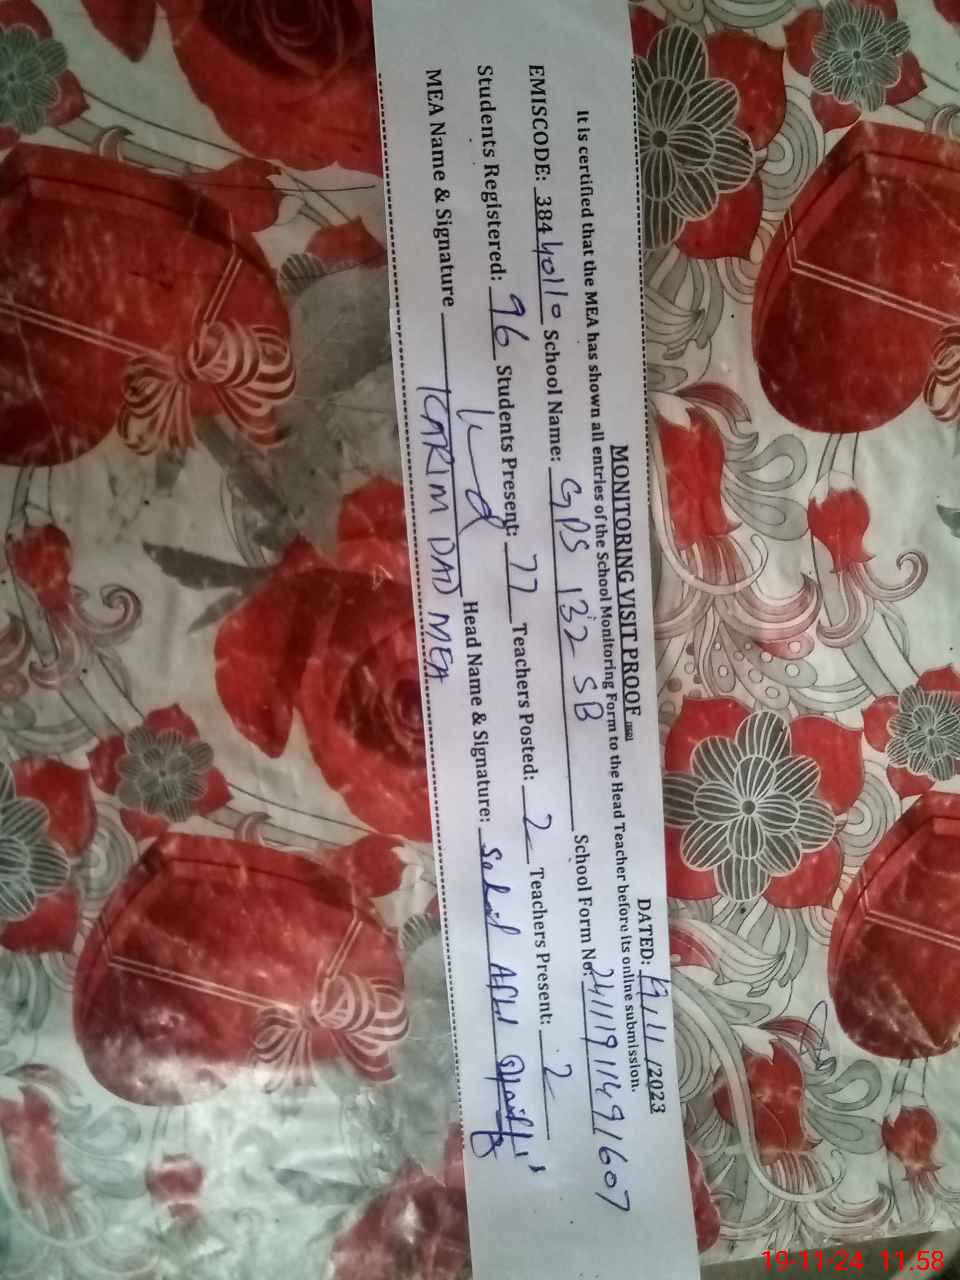 MONITORING VISIT PROOF
DATED: 19/11/2023
It is certified that the MEA has shown all entries of the School Monitoring Form to the Head Teacher before its online submission.
EMISCODE: 38440110 School Name: GPS 132 SB School Form No: 24111911491607
Students Registered: 96 Students Present: 77 Teachers Posted: 2 Teachers Present: 2
MEA Name & Signature KARIM DAD MEA Head Name & Signature:
19-11-24 11.58